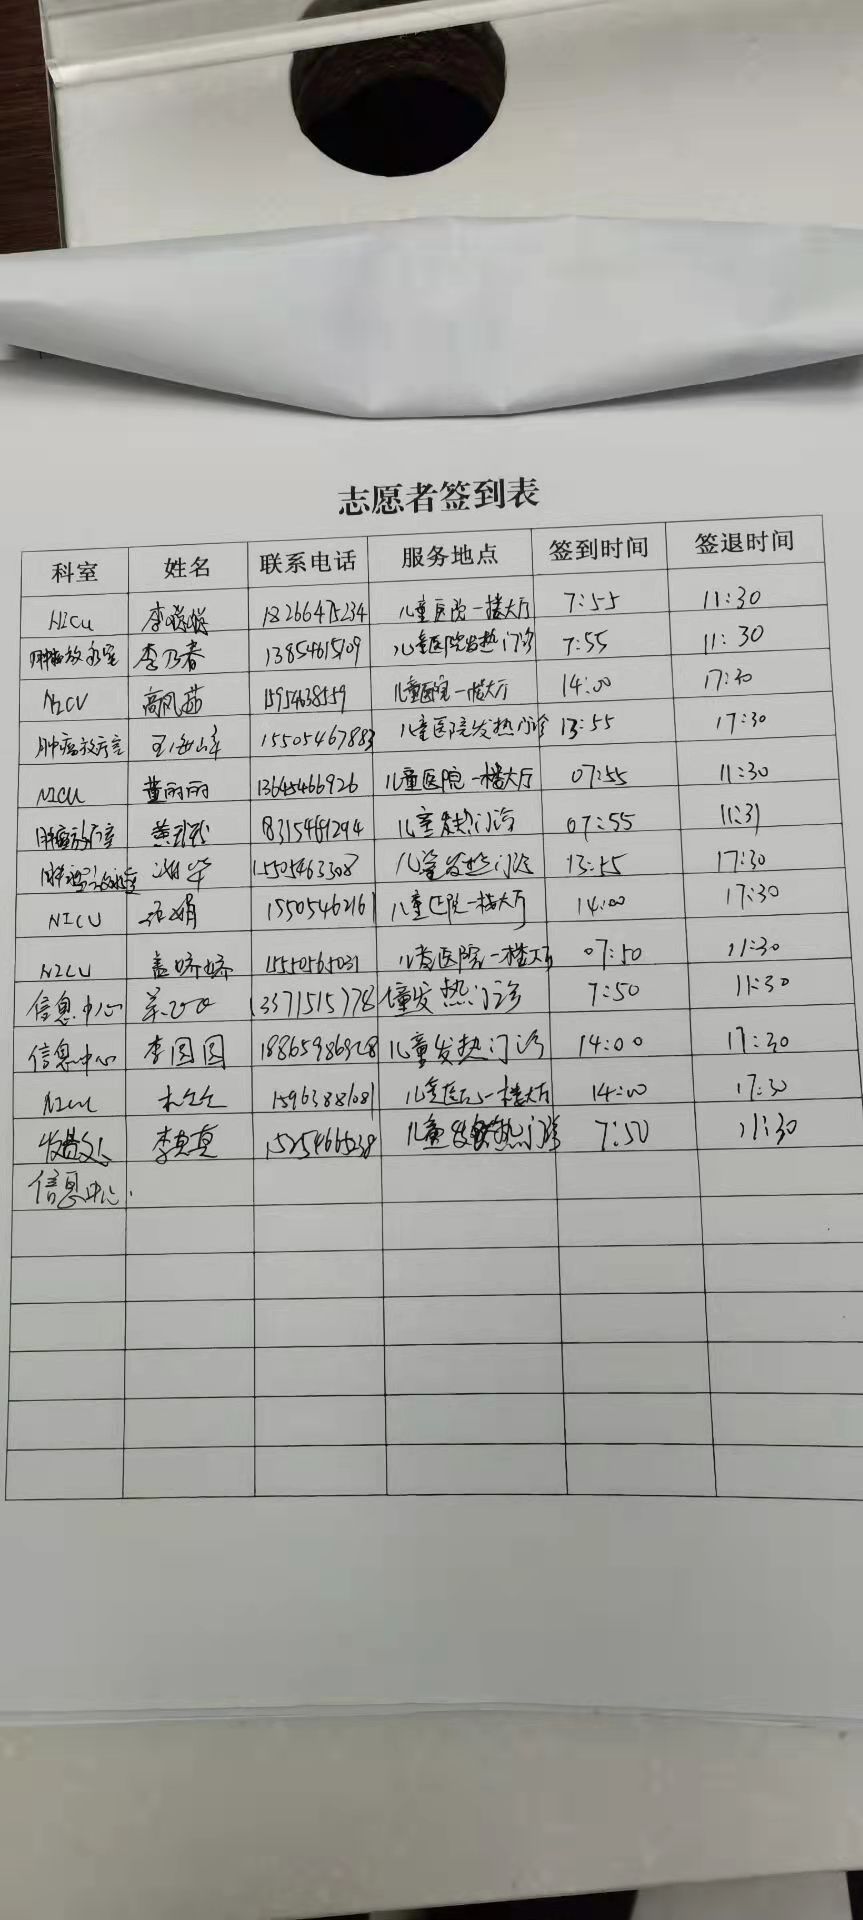 志愿者签到表
科室 姓名 联系电话 服务地点 签到时间 签退时间
NICU 李 18266475234 儿童医院一楼大厅 7:55 11:30
肿瘤放疗室 李乃春 13854615109 儿童医院发热门诊 7:55 11:30
NICU 高凤茹 15954638559 儿童医院一楼大厅 14:00 17:30
肿瘤放疗室 王海峰 15505467883 儿童医院发热门诊 13:55 17:30
NICU 董丽丽 13645466926 儿童医院一楼大厅 07:55 11:30
肿瘤放疗室 黄 8315461294 儿童发热门诊 07:55 11:31
肿瘤放疗室 15505463308 儿童发热门诊 13:55 17:30
NICU 张娟 15505462161 儿童医院一楼大厅 14:00 17:30
NICU 盖娇娇 儿童医院一楼大厅 07:50 11:30
信息中心 13371515778 儿童发热门诊 7:50 11:30
信息中心 李圆圆 18865986928 儿童发热门诊 14:00 17:30
NICU 15963881081 儿童医院一楼大厅 14:00 17:30
收费处 李真真 15254665238 儿童发热门诊 7:50 11:30
信息中心.